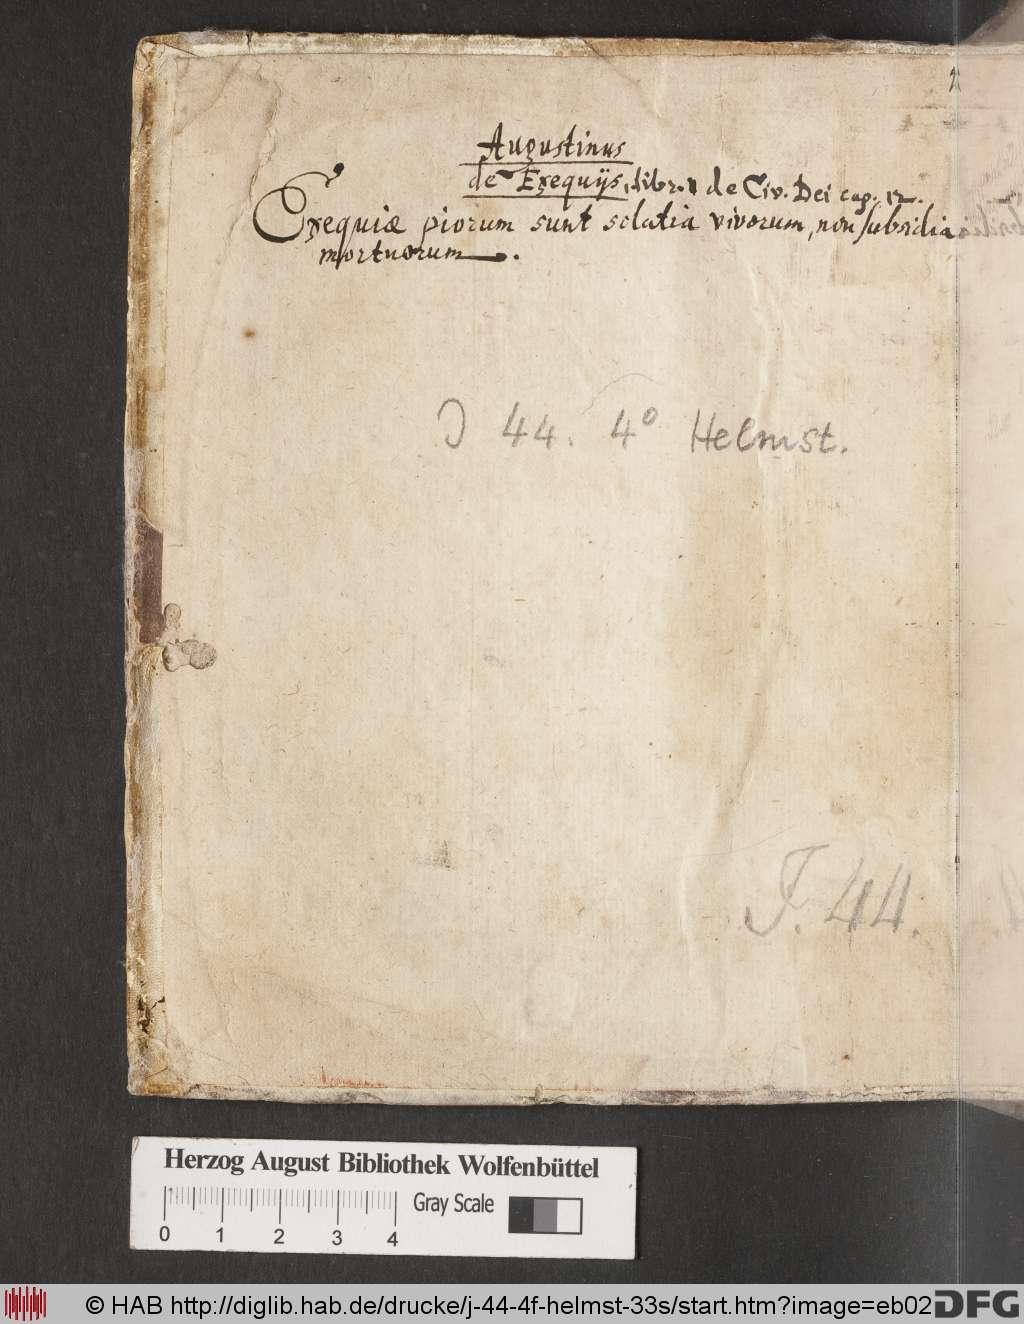 Augustinus
de Exequijs, libr. 1 de Civ. Dei cap. 12.
Exequiæ piorum sunt solatia vivorum, non subsidia
mortuorum.
J 44. 4° Helmst.
J. 44.
Herzog August Bibliothek Wolfenbüttel
Gray Scale
0 1 2 3 4
© HAB http://diglib.hab.de/drucke/j-44-4f-helmst-33s/start.htm?image=eb02
DFG